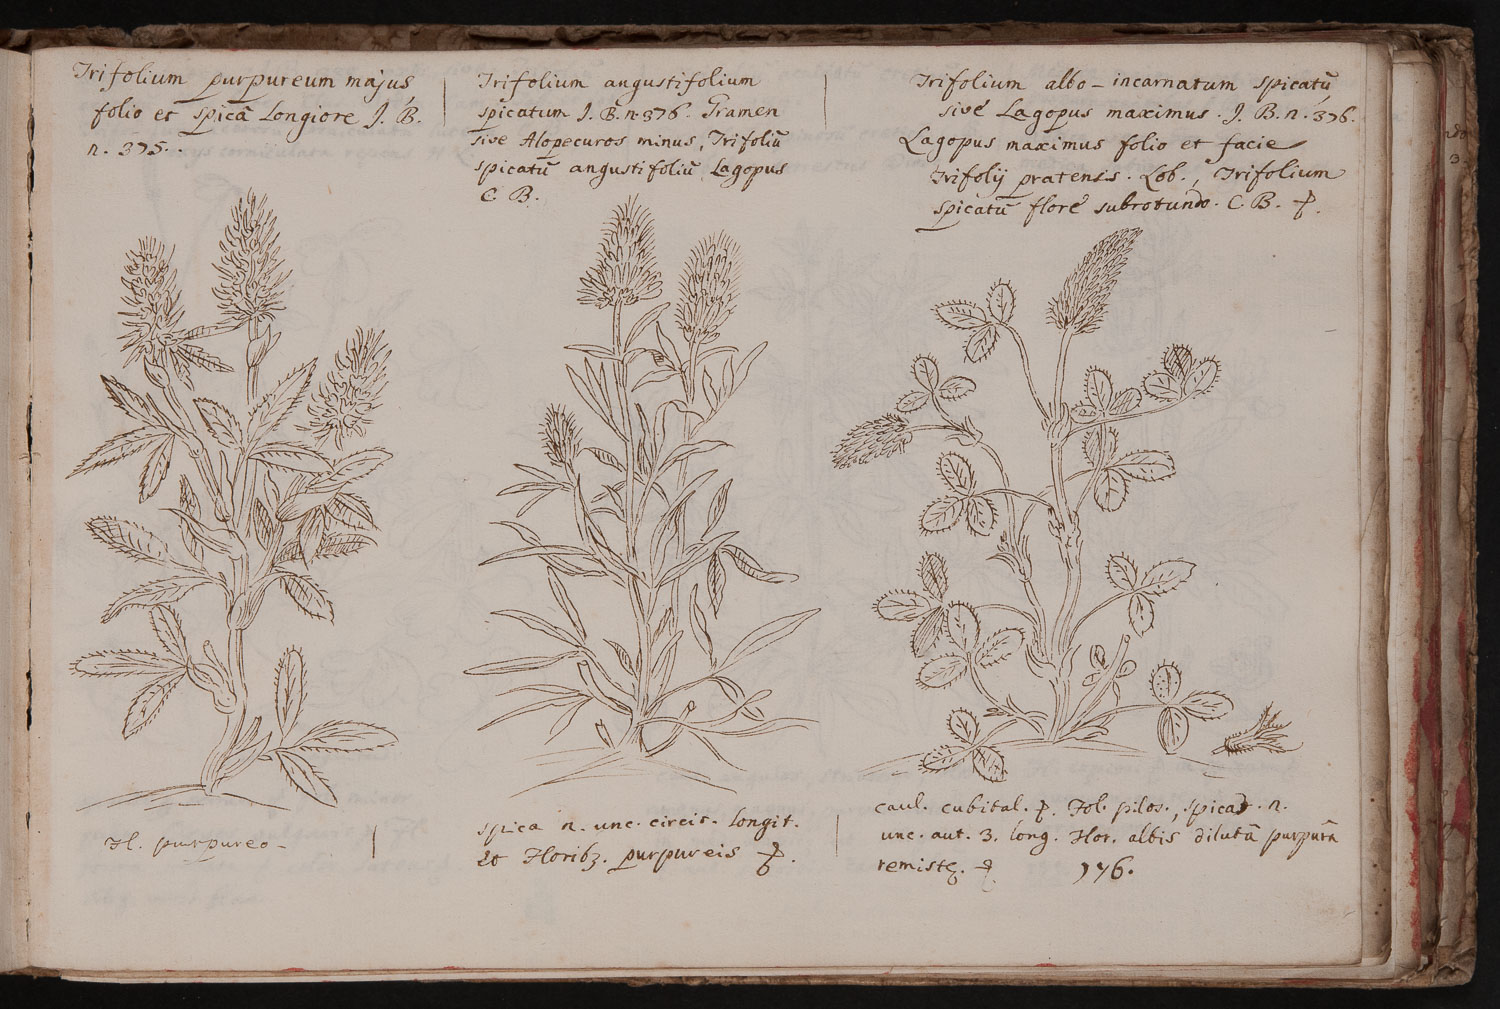 Trifolium purpureum majus
folio et spicâ Longiore J. B.
n. 375.
Trifolium angustifolium
spicatum J. B. n. 376. Gramen
sive Alopecuros minus, Trifoliū
spicatū angustifoliū Lagopus
C. B.
Trifolium albo-incarnatum spicatū
sive Lagopus maximus. J. B. n. 376.
Lagopus maximus folio et facie
Trifolij pratensis. Lob., Trifolium
spicatū flore subrotundo. C. B.
Fl. purpureo
spica n. unc. circit. Longit.
Floribz. purpureis
caul. cubital. Fol. pilos., n.
unc. aut. 3. long. Flor. albis dilutâ purpurâ
176.